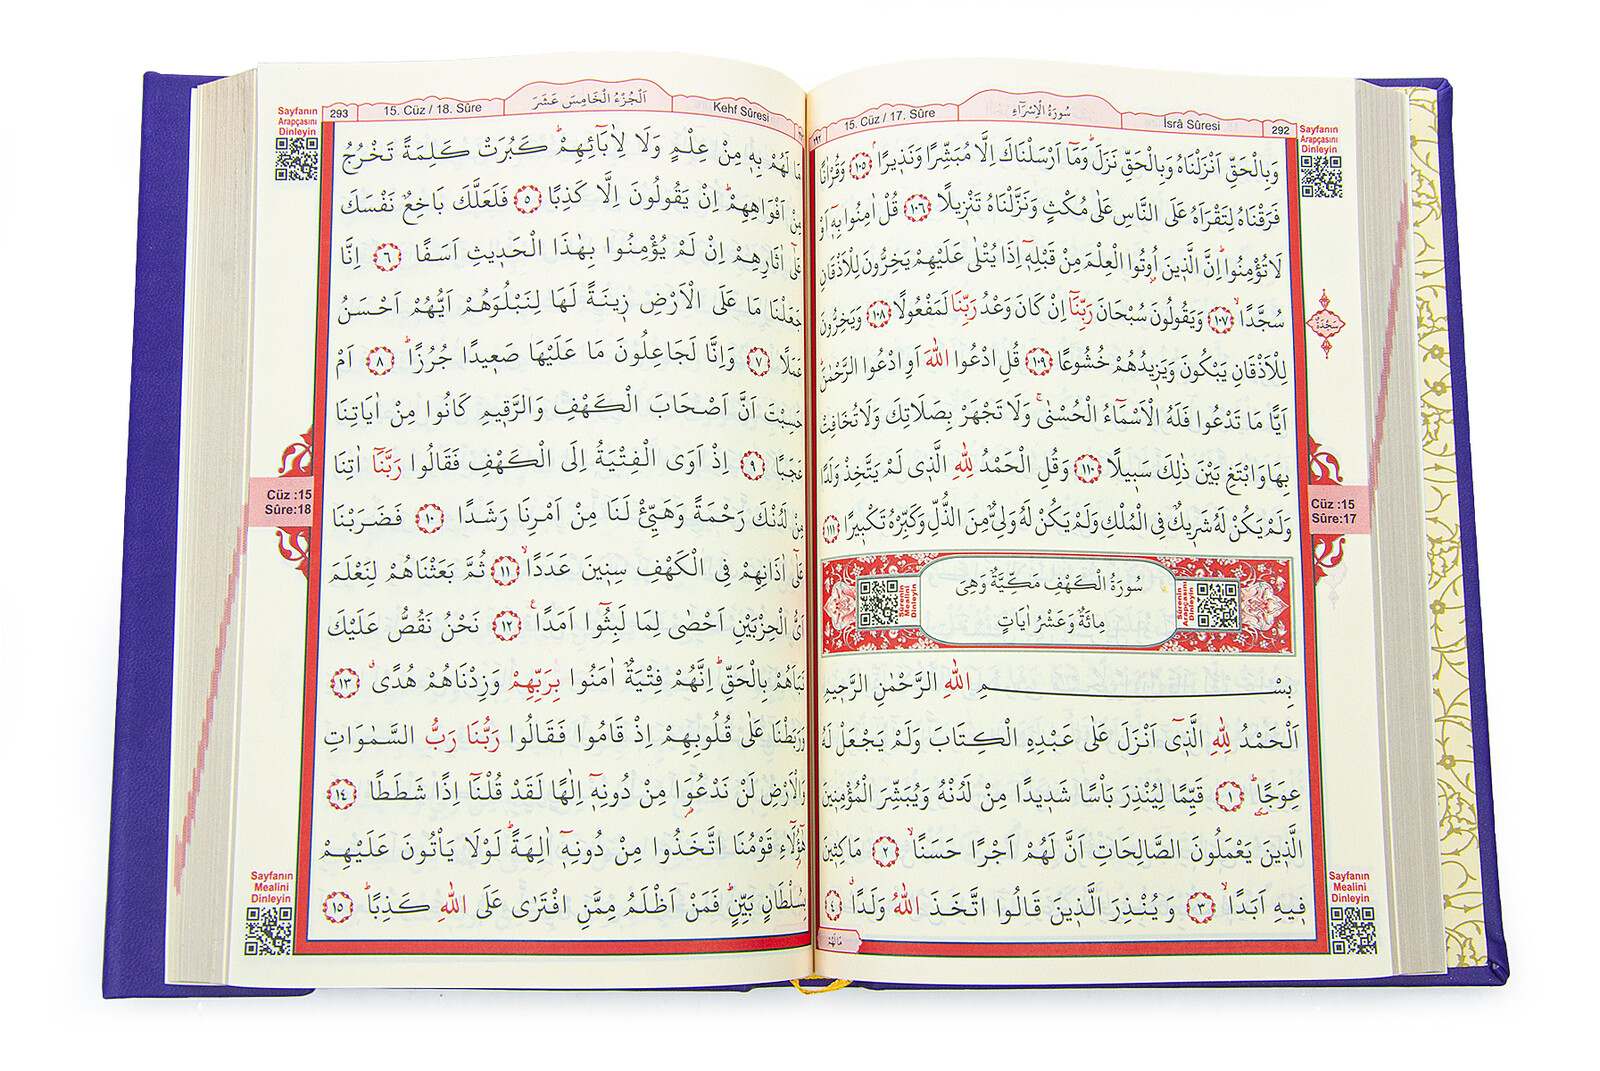 Sayfanın
Arapçasını
Dinleyin
292
İsrâ Sûresi
سُورَةُ الْاِسْرَٓاءِ
15. Cüz / 17. Sûre
وَبِالْحَقِّ اَنْزَلْنَاهُ وَبِالْحَقِّ نَزَلَۜ وَمَٓا اَرْسَلْنَاكَ اِلَّا مُبَشِّرًا وَنَذِيرًاۢ ﴿١٠٥﴾ وَقُرْاٰنًا
فَرَقْنَاهُ لِتَقْرَاَهُ عَلَى النَّاسِ عَلٰى مُكْثٍ وَنَزَّلْنَاهُ تَنْزِيلًا ﴿١٠٦﴾ قُلْ اٰمِنُوا بِهٖٓ اَوْ
لَا تُؤْمِنُواۜ اِنَّ الَّذِينَ اُو۫تُوا الْعِلْمَ مِنْ قَبْلِهٖٓ اِذَا يُتْلٰى عَلَيْهِمْ يَخِرُّونَ لِلْاَذْقَانِ
سُجَّدًاۙ ﴿١٠٧﴾ وَيَقُولُونَ سُبْحَانَ رَبِّنَٓا اِنْ كَانَ وَعْدُ رَبِّنَا لَمَفْعُولًا ﴿١٠٨﴾ وَيَخِرُّونَ
سَجْدَةٌ
لِلْاَذْقَانِ يَبْكُونَ وَيَزِيدُهُمْ خُشُوعًا ﴿١٠٩﴾ قُلِ ادْعُوا اللّٰهَ اَوِ ادْعُوا الرَّحْمٰنَۜ
اَيًّا مَا تَدْعُوا فَلَهُ الْاَسْمَٓاءُ الْحُسْنٰىۚ وَلَا تَجْهَرْ بِصَلَاتِكَ وَلَا تُخَافِتْ
بِهَا وَابْتَغِ بَيْنَ ذٰلِكَ سَبِيلًا ﴿١١٠﴾ وَقُلِ الْحَمْدُ لِلّٰهِ الَّذِى لَمْ يَتَّخِذْ وَلَدًا
وَلَمْ يَكُنْ لَهُ شَرِيكٌ فِى الْمُلْكِ وَلَمْ يَكُنْ لَهُ وَلِىٌّ مِنَ الذُّلِّ وَكَبِّرْهُ تَكْبِيرًا ﴿١١١﴾
Cüz :15
Sûre:17
سُورَةُ الْكَهْفِ مَكِّيَّةٌ وَهِىَ
مِائَةٌ وَعَشْرُ اٰيَاتٍ
Sûrenin
Arapçasını
Dinleyin
Sûrenin
Mealini
Dinleyin
بِسْمِ اللّٰهِ الرَّحْمٰنِ الرَّحِيمِ
اَلْحَمْدُ لِلّٰهِ الَّذِٓى اَنْزَلَ عَلٰى عَبْدِهِ الْكِتَابَ وَلَمْ يَجْعَلْ لَهُ
عِوَجًاۜ ﴿١﴾ قَيِّمًا لِيُنْذِرَ بَاْسًا شَدِيدًا مِنْ لَدُنْهُ وَيُبَشِّرَ الْمُؤْمِنِينَ
الَّذِينَ يَعْمَلُونَ الصَّالِحَاتِ اَنَّ لَهُمْ اَجْرًا حَسَنًاۙ ﴿٢﴾ مَاكِثِينَ
فِيهِ اَبَدًاۙ ﴿٣﴾ وَيُنْذِرَ الَّذِينَ قَالُوا اتَّخَذَ اللّٰهُ وَلَدًاۗ ﴿٤﴾
مَا لَهُمْ
Sayfanın
Mealini
Dinleyin
Kehf Sûresi
اَلْجُزْءُ الْخَامِسَ عَشَرَ
15. Cüz / 18. Sûre
293
Sayfanın
Arapçasını
Dinleyin
مَا لَهُمْ بِهٖ مِنْ عِلْمٍ وَلَا لِاٰبَٓائِهِمْۜ كَبُرَتْ كَلِمَةً تَخْرُجُ
مِنْ اَفْوَاهِهِمْۜ اِنْ يَقُولُونَ اِلَّا كَذِبًا ﴿٥﴾ فَلَعَلَّكَ بَاخِعٌ نَفْسَكَ
عَلٰٓى اٰثَارِهِمْ اِنْ لَمْ يُؤْمِنُوا بِهٰذَا الْحَدِيثِ اَسَفًا ﴿٦﴾ اِنَّا
جَعَلْنَا مَا عَلَى الْاَرْضِ زِينَةً لَهَا لِنَبْلُوَهُمْ اَيُّهُمْ اَحْسَنُ
عَمَلًا ﴿٧﴾ وَاِنَّا لَجَاعِلُونَ مَا عَلَيْهَا صَعِيدًا جُرُزًاۜ ﴿٨﴾ اَمْ
حَسِبْتَ اَنَّ اَصْحَابَ الْكَهْفِ وَالرَّقِيمِ كَانُوا مِنْ اٰيَاتِنَا
عَجَبًا ﴿٩﴾ اِذْ اَوَى الْفِتْيَةُ اِلَى الْكَهْفِ فَقَالُوا رَبَّنَٓا اٰتِنَا
مِنْ لَدُنْكَ رَحْمَةً وَهَيِّئْ لَنَا مِنْ اَمْرِنَا رَشَدًا ﴿١٠﴾ فَضَرَبْنَا
Cüz :15
Sûre:18
عَلٰٓى اٰذَانِهِمْ فِى الْكَهْفِ سِنِينَ عَدَدًاۙ ﴿١١﴾ ثُمَّ بَعَثْنَاهُمْ لِنَعْلَمَ
اَىُّ الْحِزْبَيْنِ اَحْصٰى لِمَا لَبِثُٓوا اَمَدًا۟ ﴿١٢﴾ نَحْنُ نَقُصُّ عَلَيْكَ
نَبَاَهُمْ بِالْحَقِّۜ اِنَّهُمْ فِتْيَةٌ اٰمَنُوا بِرَبِّهِمْ وَزِدْنَاهُمْ هُدًىۗ ﴿١٣﴾
وَرَبَطْنَا عَلٰى قُلُوبِهِمْ اِذْ قَامُوا فَقَالُوا رَبُّنَا رَبُّ السَّمٰوَاتِ
وَالْاَرْضِ لَنْ نَدْعُوَ۬ا مِنْ دُونِهٖٓ اِلٰهًا لَقَدْ قُلْنَٓا اِذًا شَطَطًا ﴿١٤﴾
هٰٓؤُ۬لَٓاءِ قَوْمُنَا اتَّخَذُوا مِنْ دُونِهٖٓ اٰلِهَةًۜ لَوْلَا يَاْتُونَ عَلَيْهِمْ
بِسُلْطَانٍ بَيِّنٍۜ فَمَنْ اَظْلَمُ مِمَّنِ افْتَرٰى عَلَى اللّٰهِ كَذِبًاۜ ﴿١٥﴾
Sayfanın
Mealini
Dinleyin